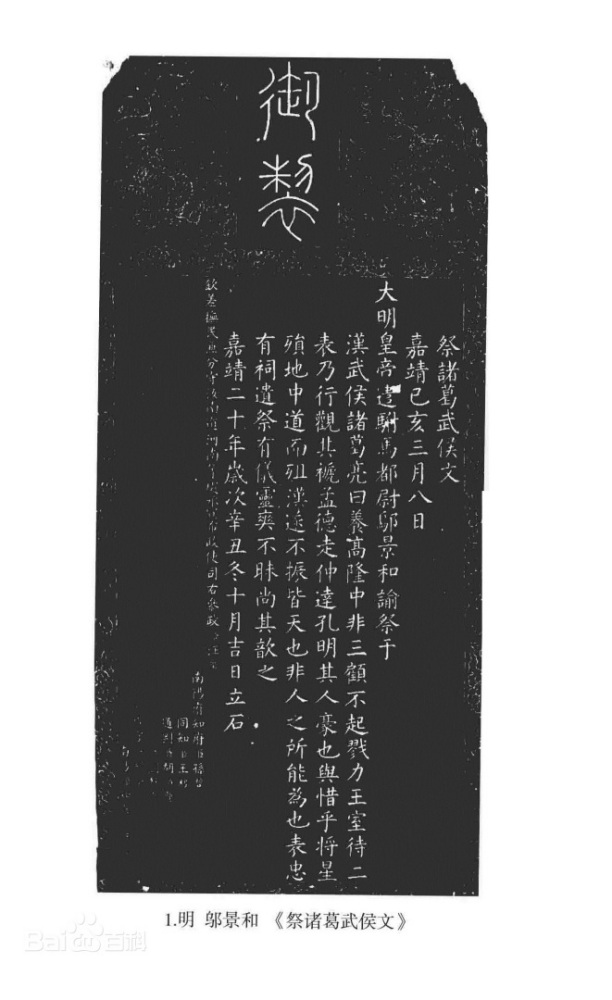 御製
祭諸葛武侯文
嘉靖己亥三月八日
大明皇帝遣駙馬都尉鄔景和諭祭于
漢武侯諸葛亮曰養高隆中非三顧不起戮力王室待二
表乃行觀其褫孟德走仲達孔明其人豪也與惜乎将星
殞地中道而殂漢遂不振皆天也非人之所能為也表忠
有祠遣祭有儀靈爽不昧尚其歆之
嘉靖二十年歲次辛丑冬十月吉日立石
欽差撫民
布政使司右叅政
南陽府知府
同知
通判
1.明 邬景和 《祭诸葛武侯文》
Bai百科